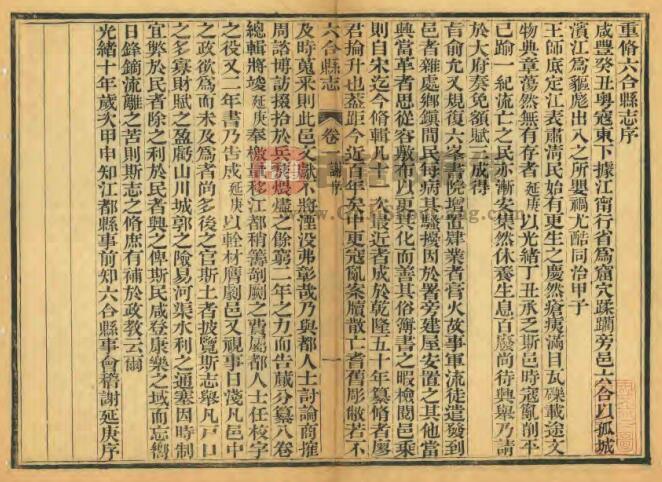 重脩六合縣志序
咸豐癸丑粵寇東下據江甯行省為窟穴蹂躪旁邑六合以孤城
濱江為貙彪出入之所嬰禍尤酷同治甲子
王師底定江表肅清民始有更生之慶然瘡痍滿目瓦礫載途文
物典章蕩然無有存者延庚以光緒丁丑承乏斯邑時寇亂削平
已踰一紀流亡之民亦漸安集然休養生息百廢尚待興舉乃請
於大府奏免額賦二成得
旨俞允又規復六峯書院增置肄業者膏火故事軍流徒遣發到
邑者雜處鄉鎮間民每病其騷擾因於署旁建屋安置之其他當
興當革者思從容敷布以更其化而善其俗簿書之暇檢閱邑乘
則自宋迄今脩輯凡十一次最近者成於乾隆五十年纂脩者廖
君掄升也蓋距今近百年矣中更寇亂案牘散亡耆舊彫敝若不
六合縣志
卷一
謝序
一
及時蒐采則此邑文獻不將湮没弗彰哉乃與都人士討論商搉
周諮博訪掇拾於兵燹煨燼之餘窮二年之力而告蕆分纂八卷
總輯將竣延庚奉檄量移江都稍籌剞劂之費屬都人士任校字
之役又二年書乃告成延庚以輇材膺劇邑又視事日淺凡邑中
之政欲為而未及為者尚多後之官斯土者披覽斯志舉凡戸口
之多寡財賦之盈虧山川城郭之險易河渠水利之通塞因時制
宜弊於民者除之利於民者興之俾斯民咸登康樂之域而忘嚮
日鋒鏑流離之苦則斯志之脩庶有補於政教云爾
光緒十年歲次甲申知江都縣事前知六合縣事會稽謝延庚序